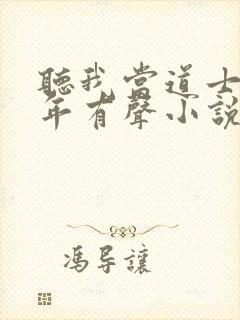 聽我當道士
年有聲小說
馮导讓